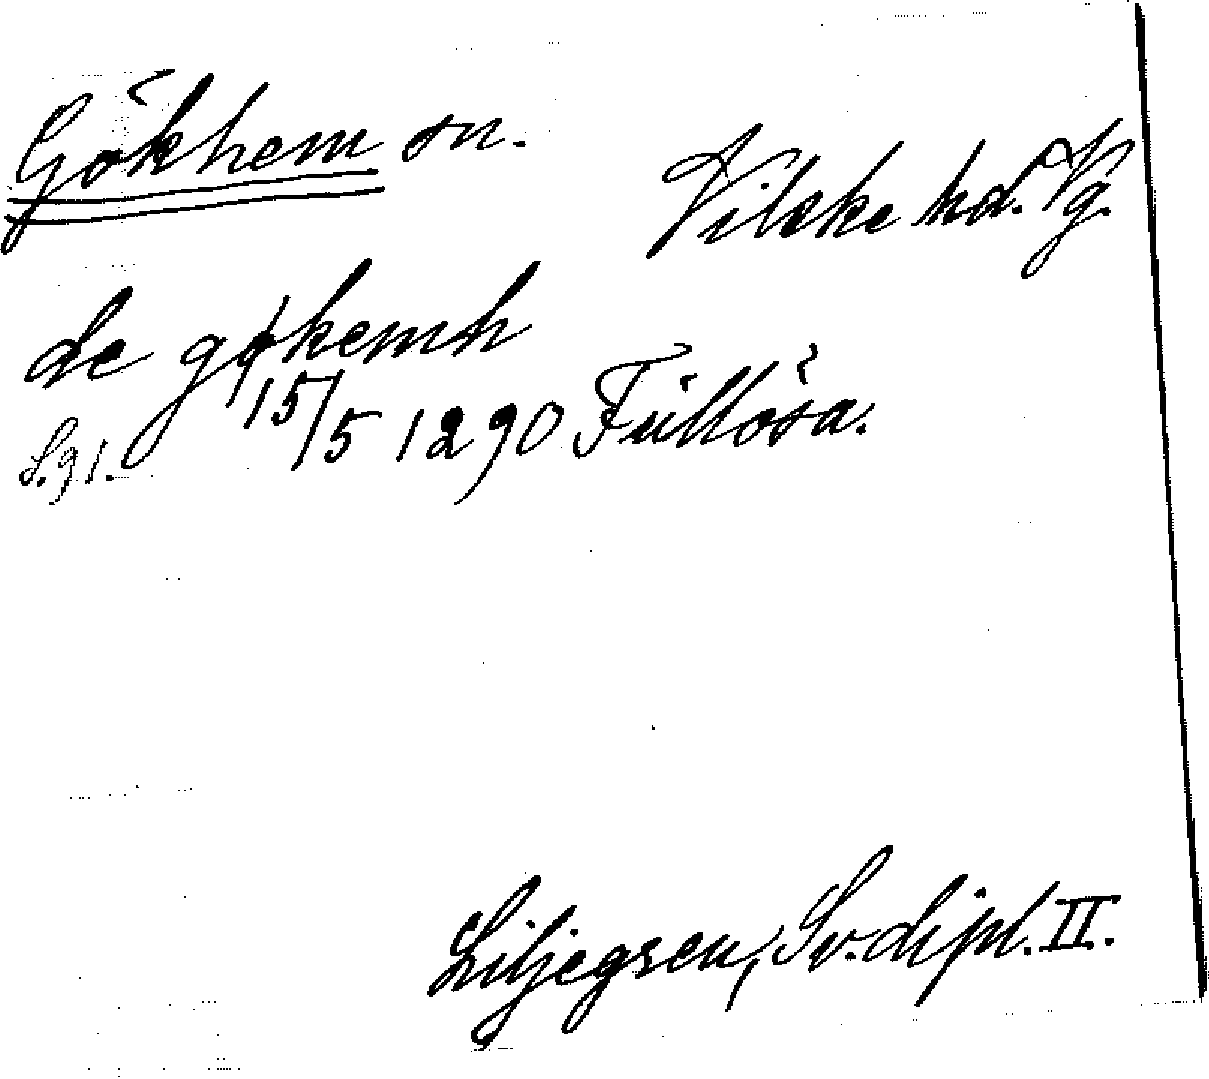 Gökhem sn. Vilske hd. Vg.
de gøkemh
15/5 1290 Füllösa.
S. 91.
Liljegren, Sv. dipl. II.